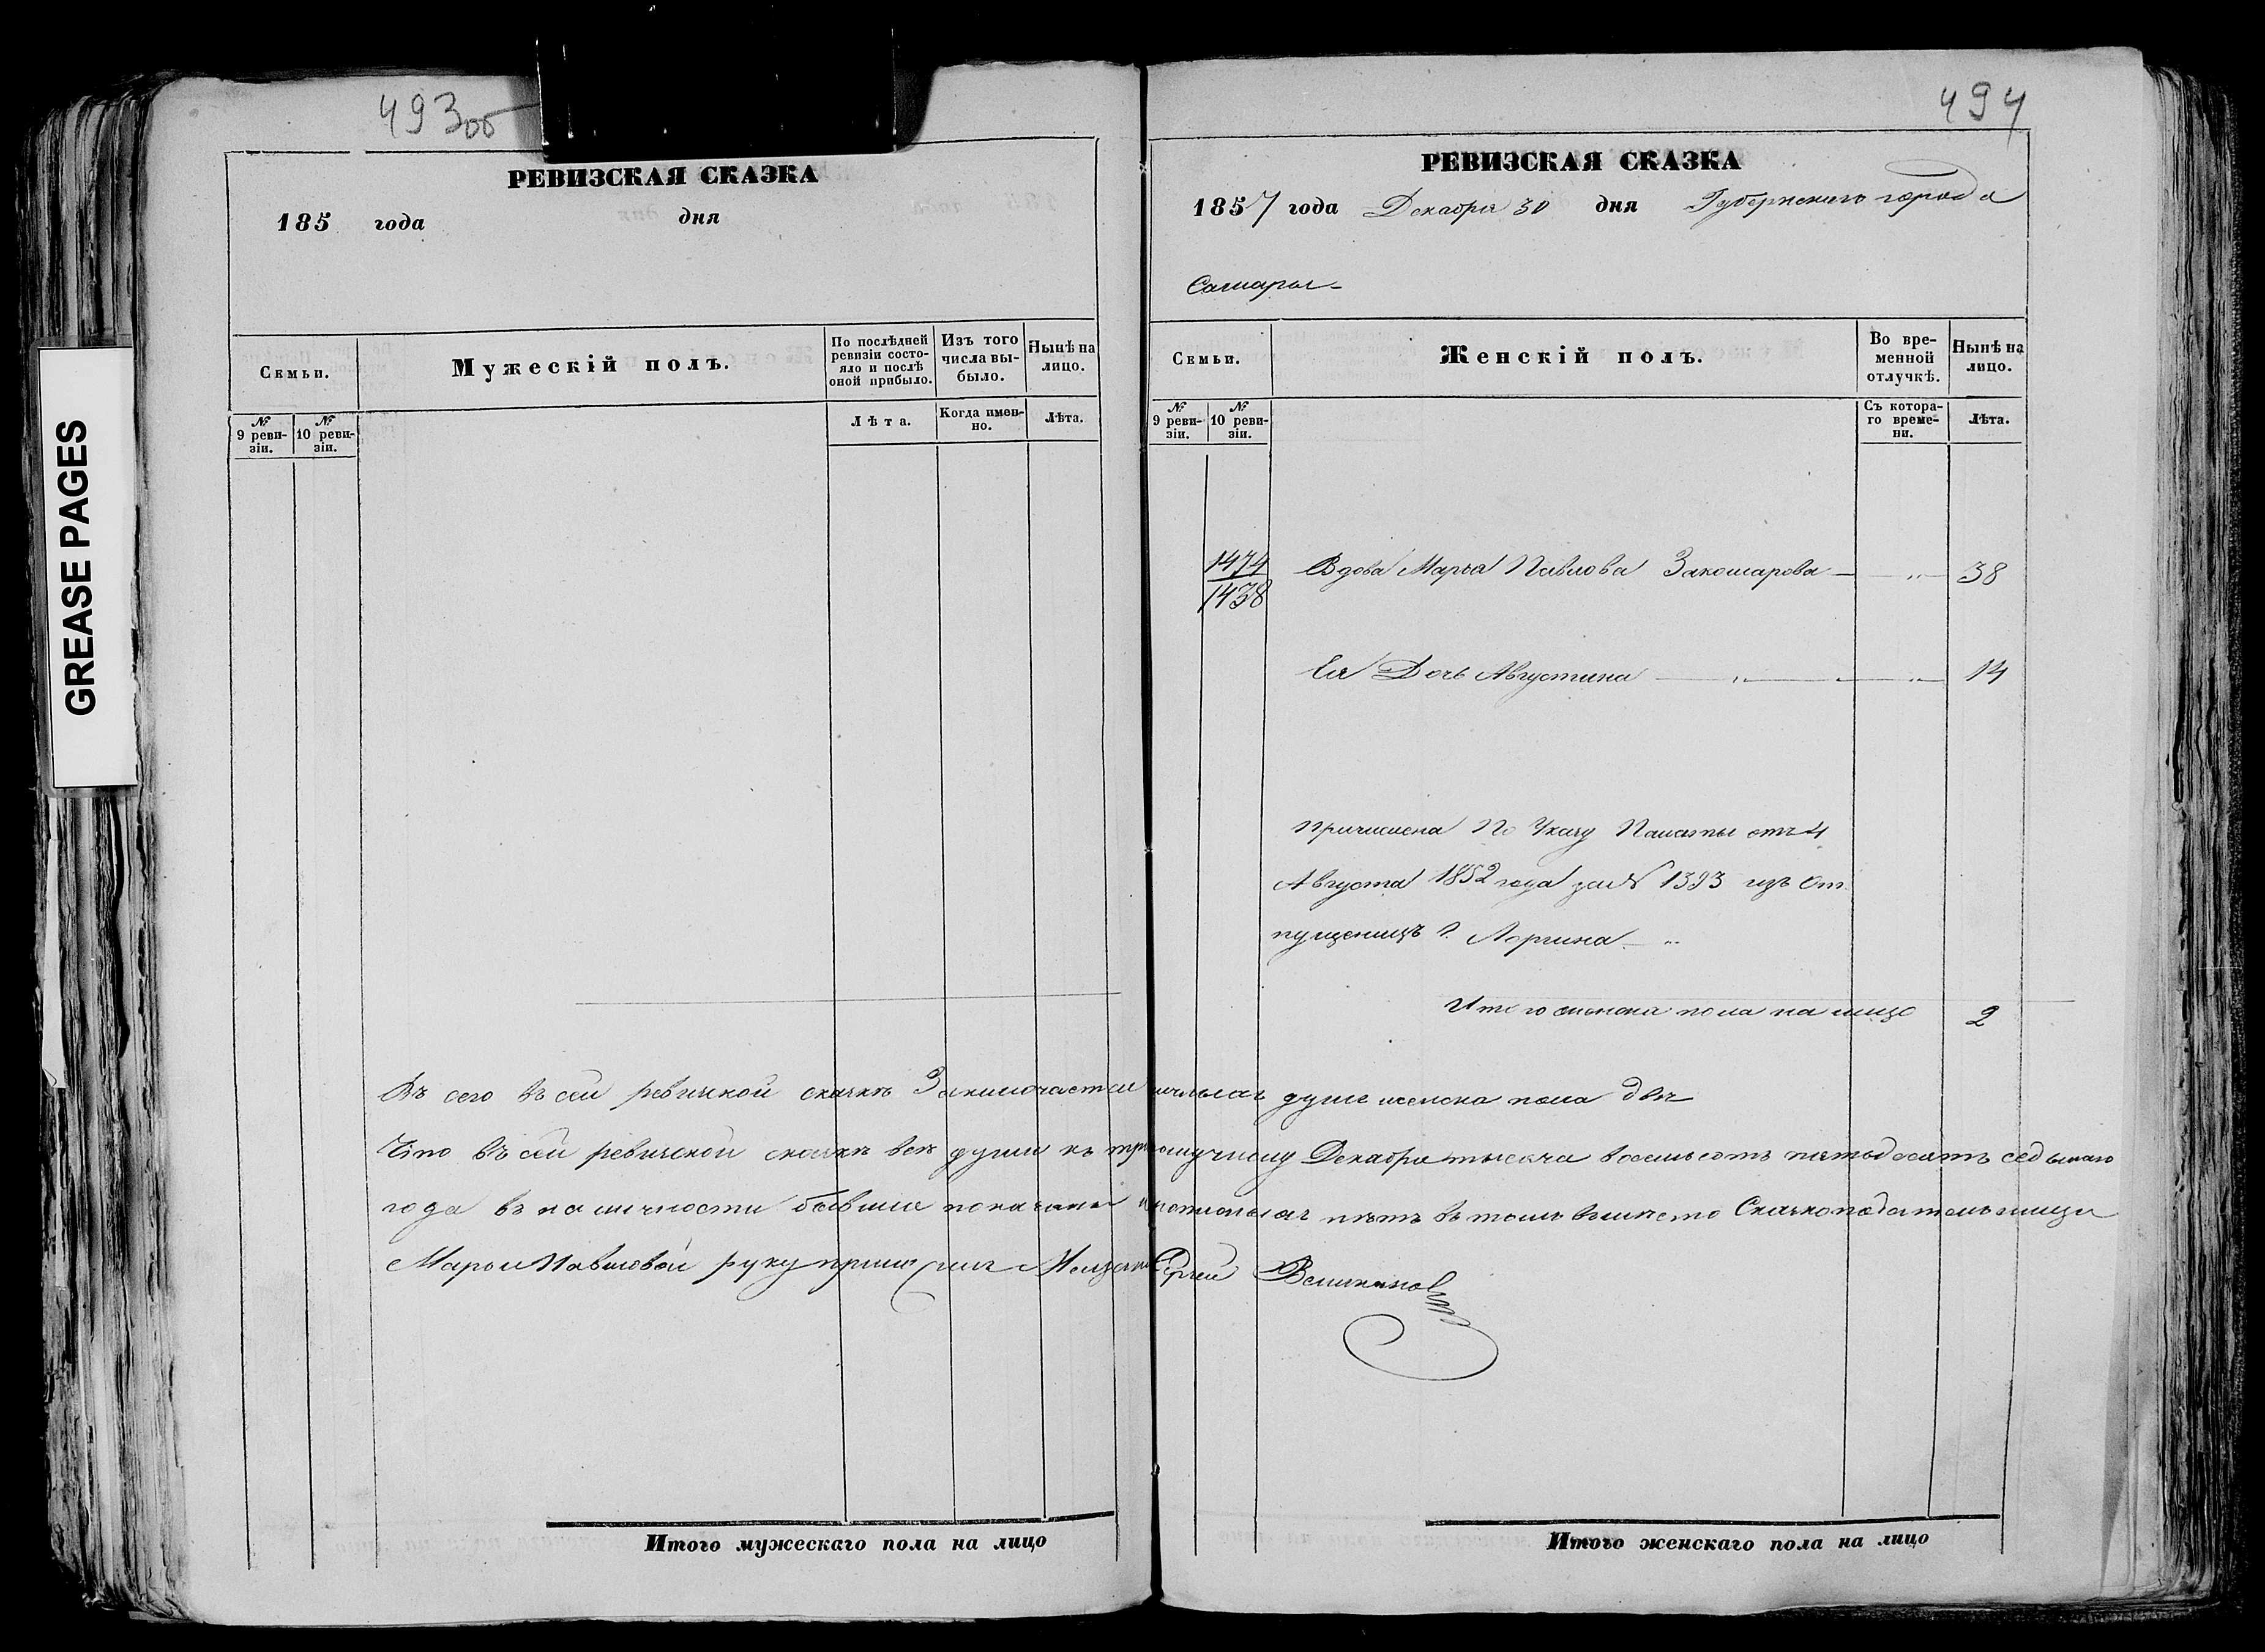 GREASE PAGES
493об
РЕВИЗСКАЯ СКАЗКА
185 года дня
Семьи.
Мужескій полъ.
По послѣдней ревизіи состояло и послѣ оной прибыло.
Изъ того числа выбыло.
Нынѣ на лицо.
№ 9 ревизіи.
№ 10 ревизіи.
Лѣта.
Когда именно.
Лѣта.
494
РЕВИЗСКАЯ СКАЗКА
1857 года Декабря 30 дня Губернскаго города
Самары
Семьи.
Женскій полъ.
Во временной отлучкѣ.
Нынѣ на лицо.
№ 9 ревизіи.
№ 10 ревизіи.
Съ котораго времени.
Лѣта.
1474
1438
Вдова Марья Павлова Закошарова — „ — 38
Ея Дочь Августина — „ — 14
причислена По Указу Палаты отъ 4
Августа 1852 года за № 1393 изъ От
пущеницъ Г.
Итого женска пола на лицо 2
Въ сего въ сей ревизской сказкѣ Заключается душъ женска пола двѣ
Что въ сей ревизской сказкѣ всѣ души къ Декабря тысяча восемьсотъ пятьдесятъ седьмаго
года въ наличности бывшие показаны и нѣтъ въ томъ вместо Сказкоподательницы
Марьи Павловой руку приложилъ Сергей Великанов
Итого мужескаго пола на лицо
Итого женскаго пола на лицо